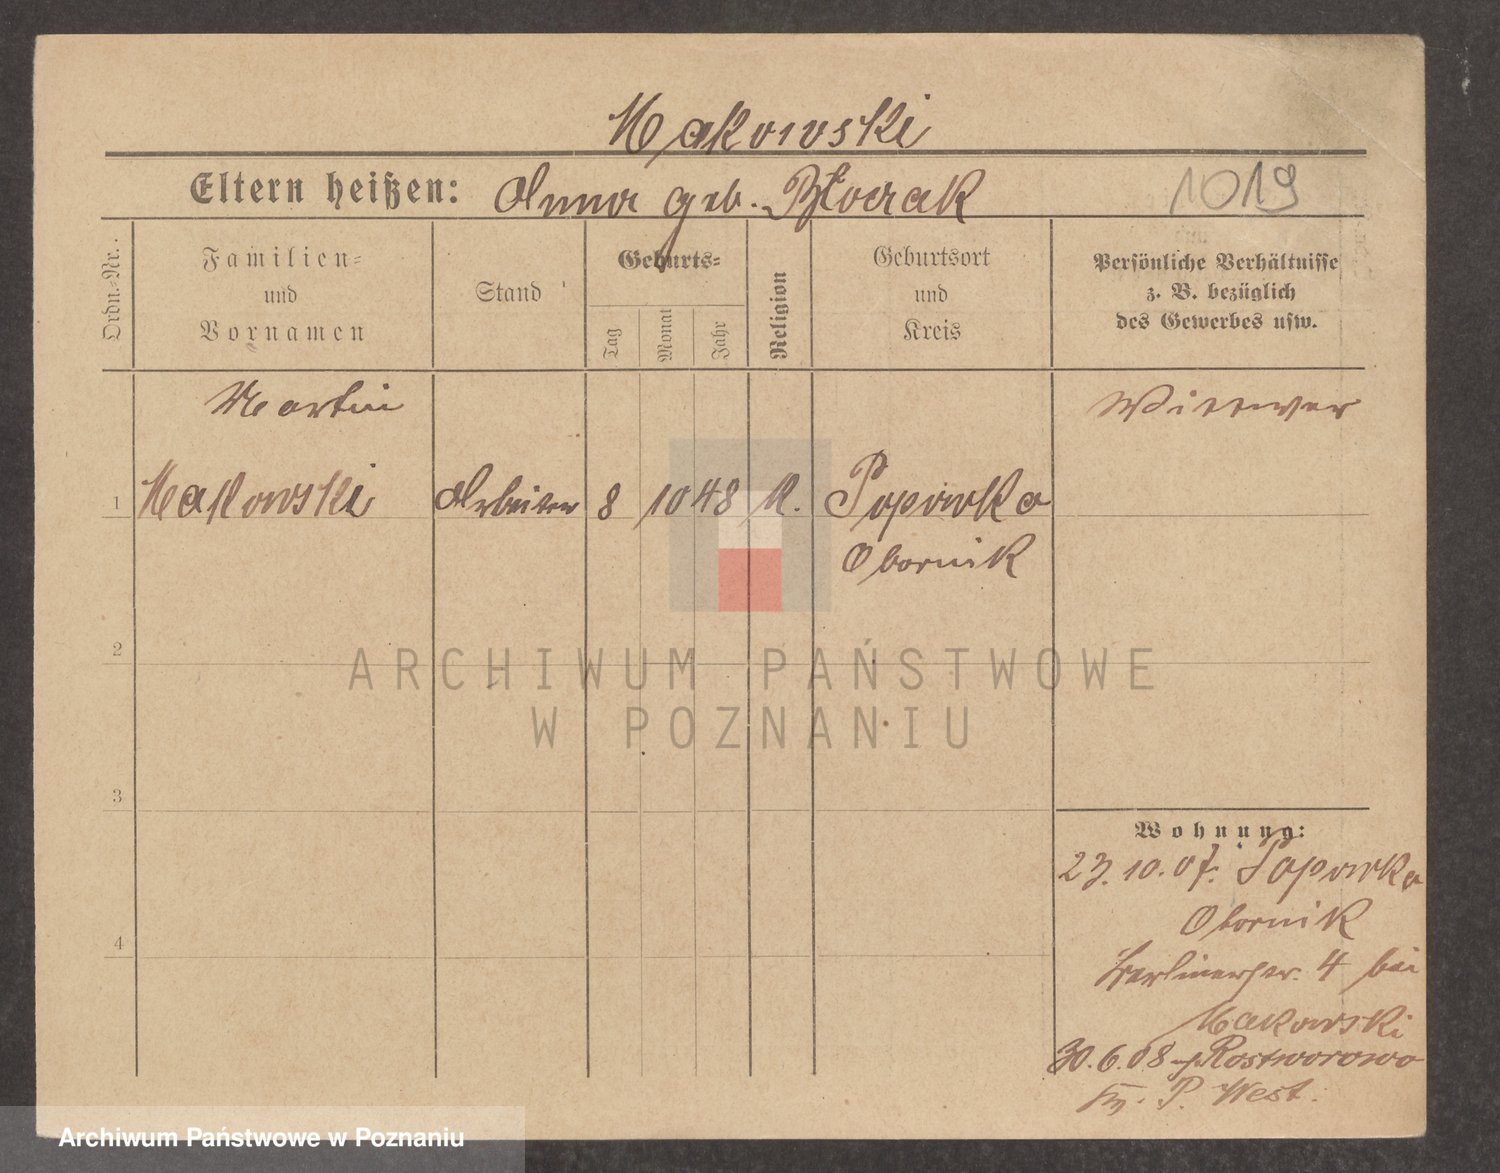 Makowski
Eltern heißen: Anna geb.
1019
Ordn.-Nr.
Familien=
und
Vornamen
Stand
Geburts=
Tag
Monat
Jahr
Religion
Geburtsort
und
Kreis
Persönliche Verhältnisse
z. B. bezüglich
des Gewerbes usw.
Martin
Wittwer
1 Makowski Arbeiter 8 10 48 k. Popowko
Obornik
2
3
4
ARCHIWUM PAŃSTWOWE
W POZNANIU
Wohnung:
23. 10. 07. Popowko
Obornik
Berlinerstr. 4 bei
Makowski
30. 6. 08 Rostworowo
P. West.
Archiwum Państwowe w Poznaniu